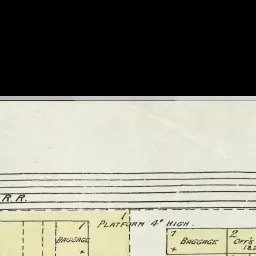 R.R.
1
PLATFORM 4' HIGH.
1
BAGGAGE
1
BAGGAGE
2
OFF'S